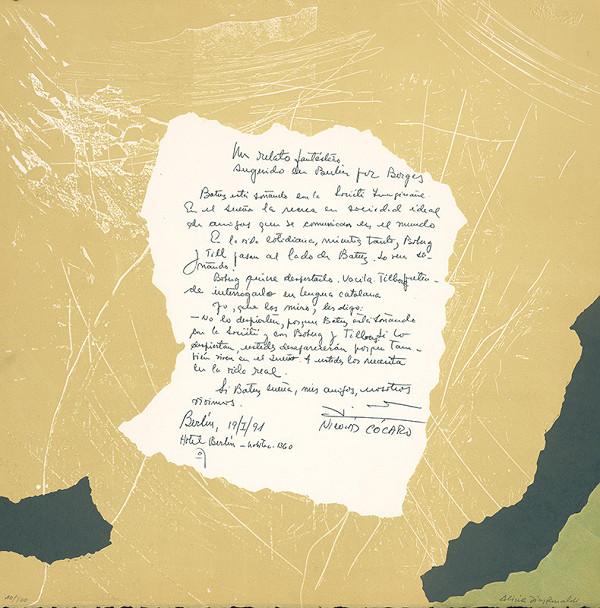 Un relato fantástico
sugerido en Berlín por Borges
Batuz está soñando en la Société Imaginaire.
En el sueño la recrea en sociedad ideal
de amigos que se comunican en el mundo
En la vida cotidiana, mientras tanto, Boberg
y Till pasan al lado de Batuz. Lo ven so-
ñando.
Boberg quiere despertarlo. Vacila. Till
de interrogarlo en lengua catalana
Yo, que los miro, les digo:
— No lo despierten, porque Batuz está soñando
en la Société y con Boberg y Till. Si lo
despiertan, ustedes desaparecerán porque tam-
bién viven en el sueño. A ustedes los necesita
en la vida real.
Si Batuz sueña, mis amigos, nosotros
vivimos.
Berlín, 19/I/91
NICOLÁS CÓCARO
Hotel Berlín - habitac. 1360
10/100
Alicia Díaz Rinaldi